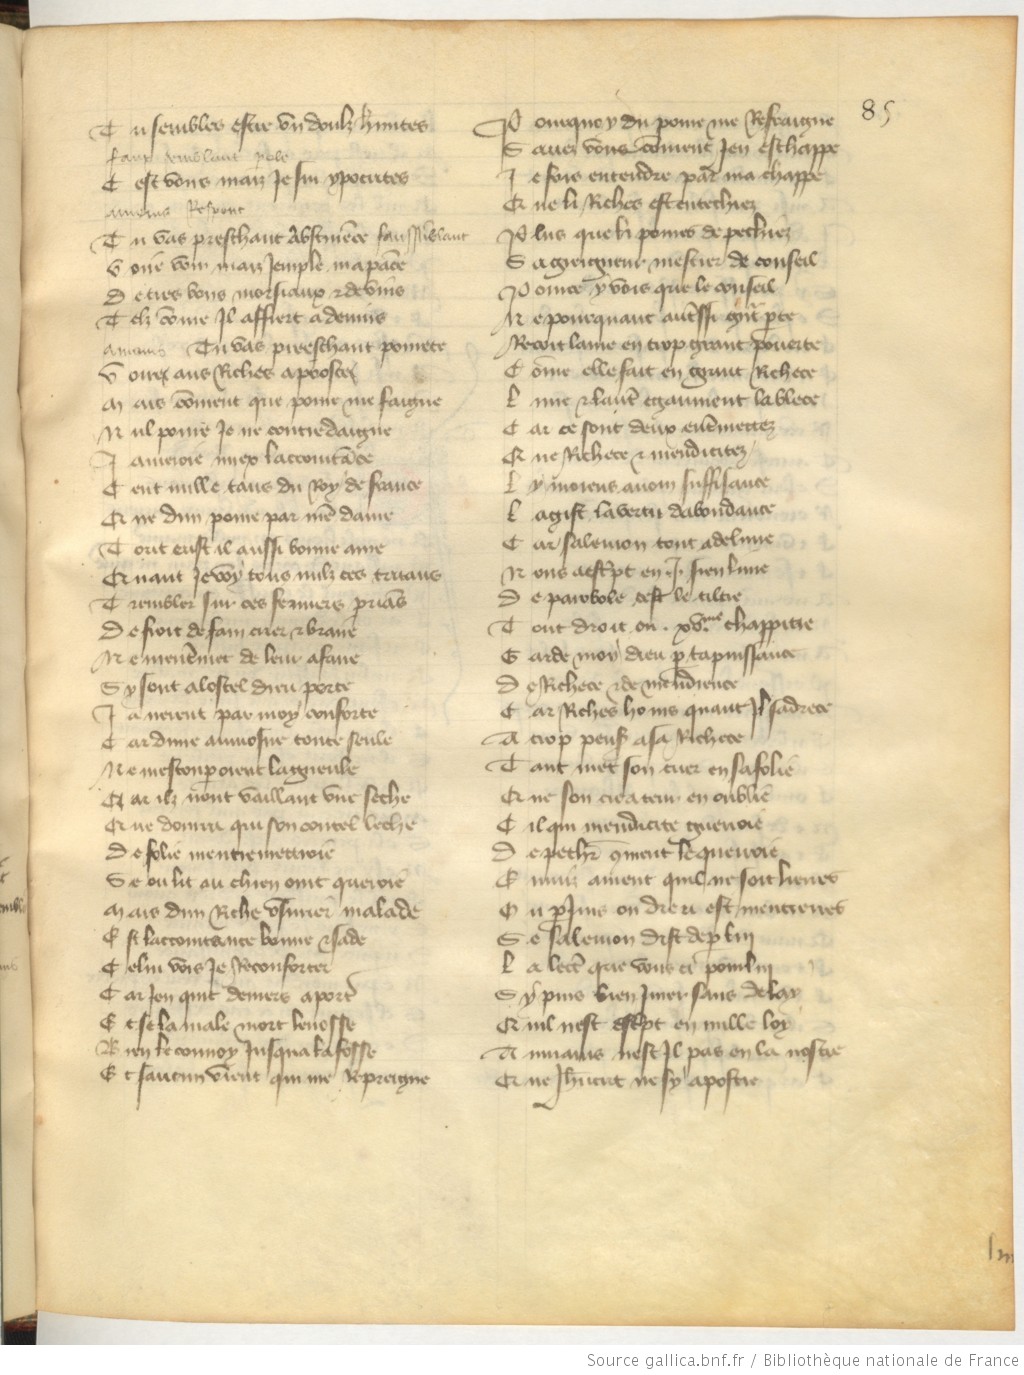 85
Tu sembles estre un doulz hmites
Faux semblant parle
C est vous maiz Je sui ypocrites
amours Respont
T u vas preschant Abstinēce fauxsēblant
V oire voir maiz Jemple ma pāce
D e tres bons morsiaux & de vins
T elz cōme Il affiert a devins
amours Tu vas preeschant povrete
V oire aus Riches a pooste
M ais cōment que povre me faigne
N ul povre Je ne contredaigne
J ameroie miex laccointāce
C ent mille tans du Roy de france
Q ne dun povre par nrē dame
T out eust il aussi bonne ame
Q uant Je voy tous nulz ces truans
T rembler sur ces femiers puans
D e froit de fain crier & braire
N e mentremet de leur afaire
S y sont a lostel dieu porte
J a nierent par moy conforte
C ar dune aumosne toute seule
N e mestouperoient la gueule
C ar ilz nont vaillant une seche
Q ue donrra qui son coutel leche
D e folie mentremettroie
S e ou lit au chien oint queroie
M ais dun Riche usurier malade
E st laccointance bonne & sade
C elui vois Je Reconforter
C ar Jen cuit deniers aporter
E t se la male mort lenosse
B ien le convoy Jusqua la fosse
E t saucun vient qui me Repreigne
P ourquoy du povre me Refraigne
S avez vous cōment Jen eschappe
J e fois entendre par ma chappe
Q ue li Riches est entechiez
P lus que li povres de pechiez
S a greigneur mestier de conseil
P our ce y vois que le conseil
N e pourquant autressi grāt perte
Recoit lame en trop grant poverte
C ōme elle fait en grant Richece
L une & lautre egaument la blece
C ar ce sont deux extremitez
Q ue Richece & mendicitez
L y moiens a nom souffisance
L a gist la vertu dabondance
C ar salemon tout a delivre
N ous a escript en .J. sien livre
D e paraboles cest le tiltre
T out droit ou .xxx.me chappitre
G arde moy dieu par ta puissance
D e Richece & de mendience
C ar Riches homs quant Il sadrece
A trop penser a sa Richece
T ant met son cuer en sa folie
Q ue son createur en oublie
C il qui mendicite guerroie
D e pechie cōment le guerroie
E nviz avient quil ne soit lierres
O u parjurs ou dieu est mentierres
S e salemon dist de par lui
L a lettre que vous ci pour lui
S y puis bien Jurer sans delay
Q uil nest escript en nulle loy
A u mains nest Il pas en la nostre
Q ue Jhucrist ne sy apostre